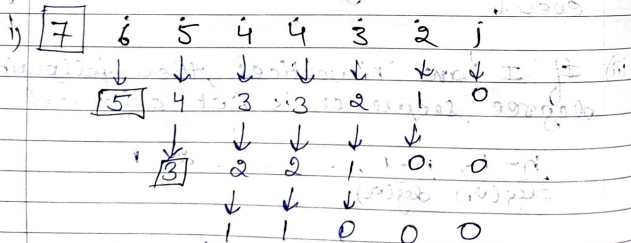 i) 7 6 5 4 4 3 2 1
5 4 3 3 2 1 0
3 2 2 1 0 0
1 1 0 0 0